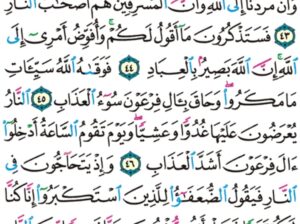 وَأَنَّ مَرَدَّنَآ إِلَى ٱللَّهِ وَأَنَّ ٱلۡمُسۡرِفِينَ هُمۡ أَصۡحَٰبُ ٱلنَّارِ
٤٣ فَسَتَذۡكُرُونَ مَآ أَقُولُ لَكُمۡۚ وَأُفَوِّضُ أَمۡرِيٓ إِلَى
ٱللَّهِۚ إِنَّ ٱللَّهَ بَصِيرُۢ بِٱلۡعِبَادِ ٤٤ فَوَقَىٰهُ ٱللَّهُ سَيِّـَٔاتِ
مَا مَكَرُواْۖ وَحَاقَ بِـَٔالِ فِرۡعَوۡنَ سُوٓءُ ٱلۡعَذَابِ ٤٥ ٱلنَّارُ
يُعۡرَضُونَ عَلَيۡهَا غُدُوّٗا وَعَشِيّٗاۚ وَيَوۡمَ تَقُومُ ٱلسَّاعَةُ أَدۡخِلُوٓاْ
ءَالَ فِرۡعَوۡنَ أَشَدَّ ٱلۡعَذَابِ ٤٦ وَإِذۡ يَتَحَآجُّونَ فِي
ٱلنَّارِ فَيَقُولُ ٱلضُّعَفَٰٓؤُاْ لِلَّذِينَ ٱسۡتَكۡبَرُوٓاْ إِنَّا كُنَّا